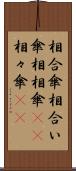 相合傘相合い
傘相相傘
相々傘